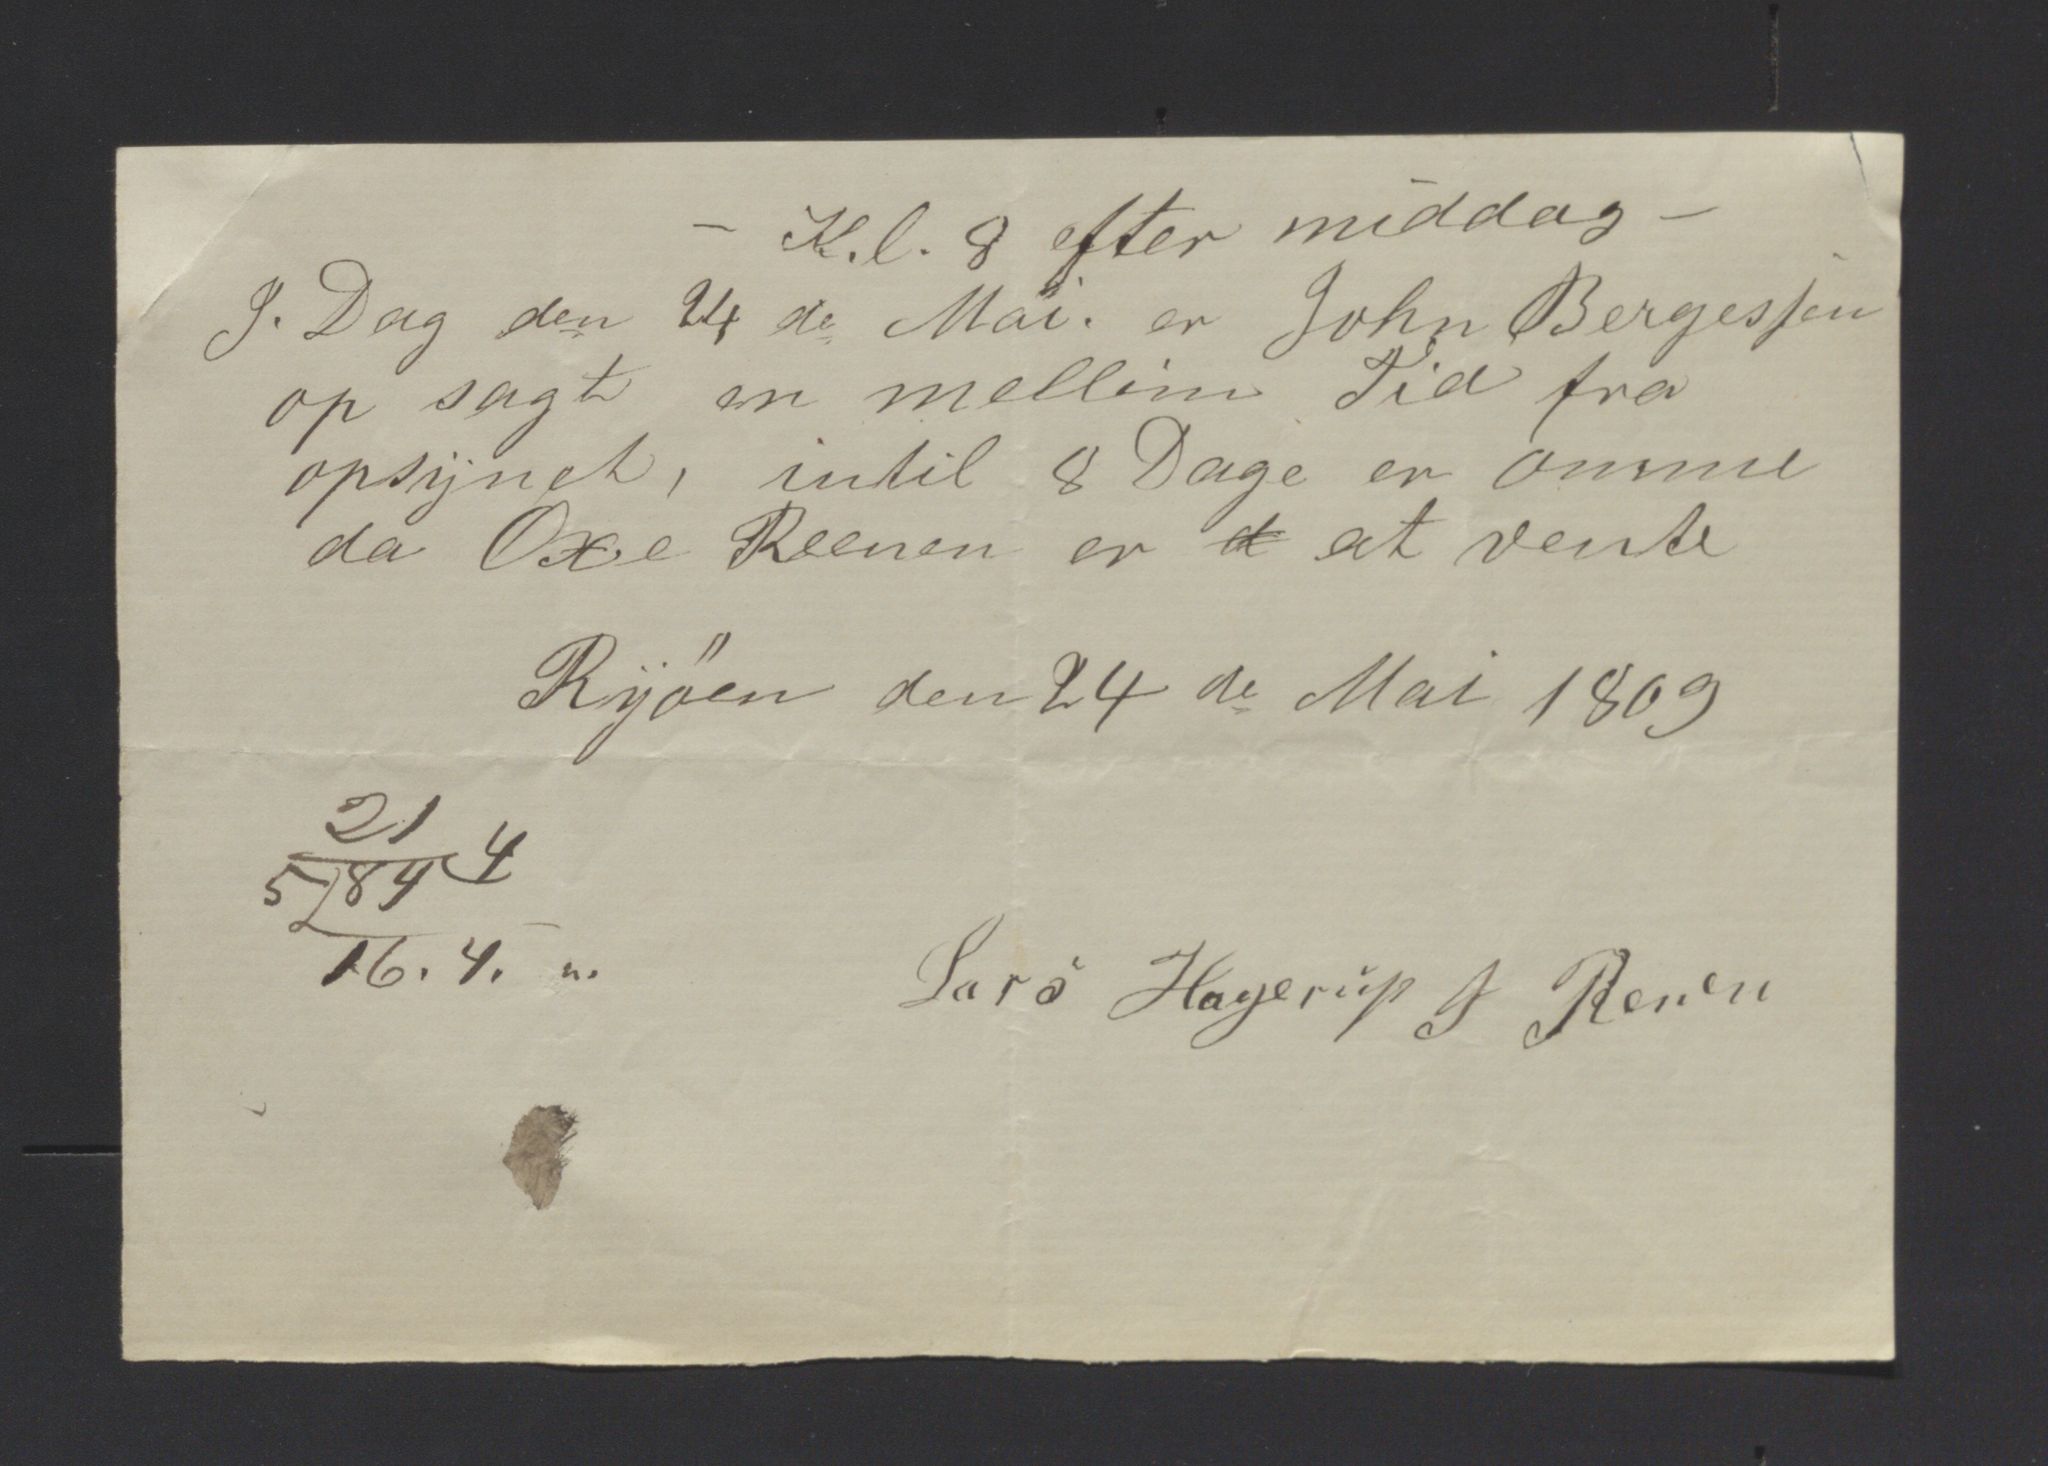 - K.l. 8 efter middag -
I. Dag den 24 de Mai. er John Bergessen
op sagt en mellem Tid fra
opsÿnet, intil 8 Dage er omme
da Oxe Reenen er at vente
Rÿöen den 24 de Mai 1869
21
5 84 4
16. 4. n.
Lars Hagerup J Renen